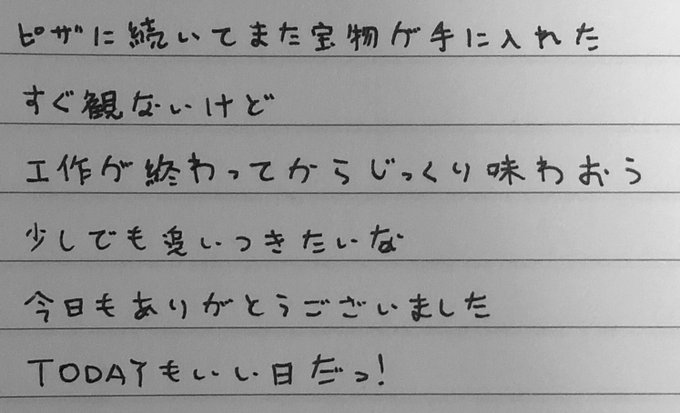 ピザに続いてまた宝物が手に入れた
すぐ観ないけど
工作が終わってからじっくり味わおう
少しでも追いつきたいな
今日もありがとうございました
TODAYもいい日だっ!